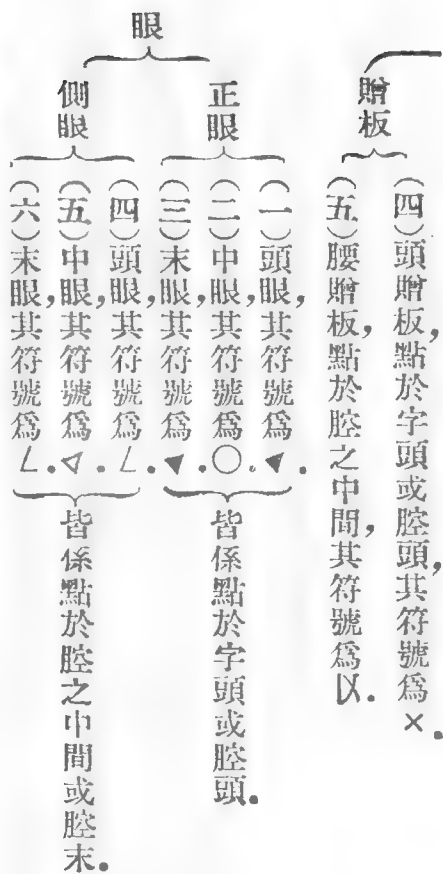 贈板
(四)頭贈板,點於字頭或腔頭,其符號爲×.
(五)腰贈板,點於腔之中間,其符號爲㕥.
眼
正眼
(一)頭眼,其符號爲◥.
(二)中眼,其符號爲○.
(三)末眼,其符號爲◥.
皆係點於字頭或腔頭.
側眼
(四)頭眼,其符號爲∟.
(五)中眼,其符號爲◁.
(六)末眼,其符號爲∟.
皆係點於腔之中間或腔末.